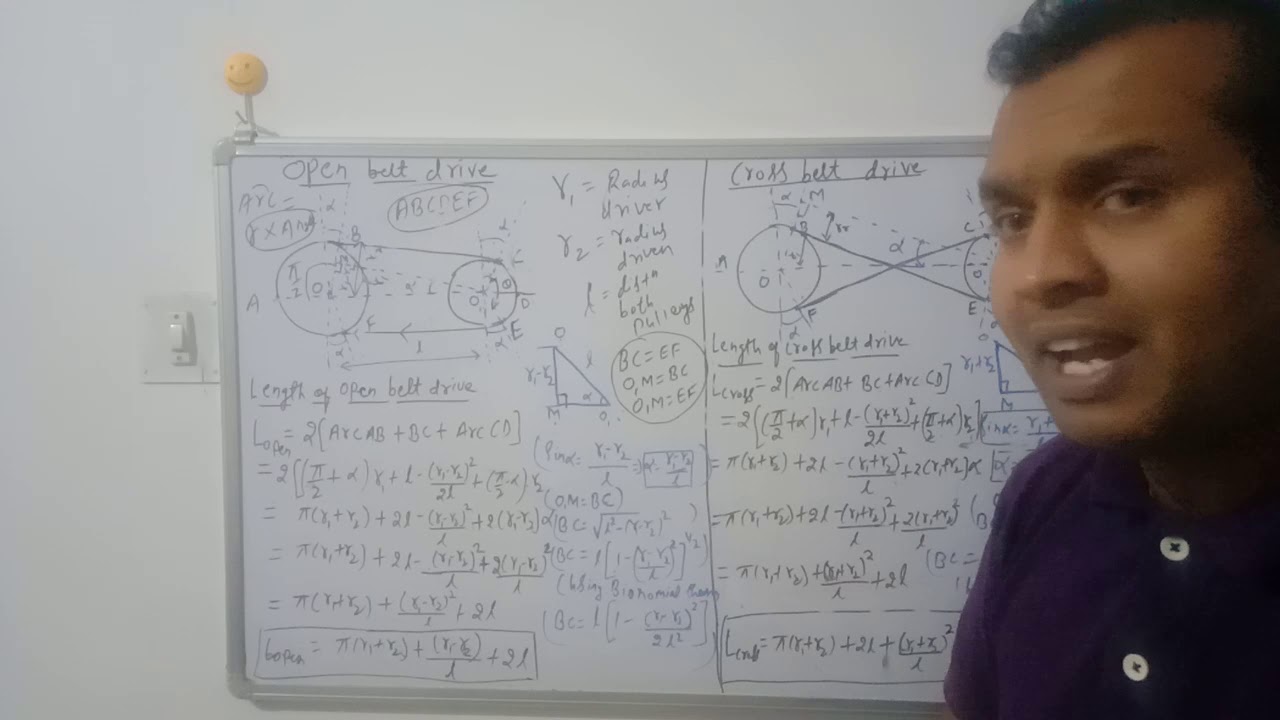 Open belt drive
Arc =
r × Ang
ABCDEF
α
B
α
C
π/2
O
A
D
F
E
α
l
α
r₁ = Radius
driver
r₂ = radius
driven
l = distⁿ
both
pulleys
BC = EF
O,M = BC
O,M = EF
O
r₁-r₂
l
M
α
O₁
Length of open belt drive
Lopen = 2[Arc AB + BC + Arc CD]
= 2[(π/2 + α) r₁ + l - (r₁-r₂)²/2l + (π/2 - α) r₂
= π(r₁+r₂) + 2l - (r₁-r₂)²/l + 2(r₁-r₂)α
= π(r₁+r₂) + 2l - (r₁-r₂)²/l + 2(r₁-r₂)²/l
= π(r₁+r₂) + (r₁-r₂)²/l + 2l
Lopen = π(r₁+r₂) + (r₁-r₂)/l + 2l
(Sinα = r₁-r₂/l = α = r₁-r₂/l
(O,M = BC)
(BC = √l²-(r₁-r₂)² )
(BC = l[1-(r₁-r₂/l)²]^1/2)
(Using Binomial
(BC = l[1 - (r₁-r₂)²/2l²]
Cross belt drive
α
M
B
α
C
A
O
F
E
α
Length of cross belt drive
Lcross = 2[Arc AB + BC + Arc CD]
= 2[(π/2+α) r₁ + l - (r₁+r₂)²/2l + (π/2+α) r₂]
= π(r₁+r₂) + 2l - (r₁+r₂)²/l + 2(r₁+r₂)α
= π(r₁+r₂) + 2l - (r₁+r₂)²/l + 2(r₁+r₂)²/l
= π(r₁+r₂) + (r₁+r₂)²/l + 2l
Lcross = π(r₁+r₂) + 2l + (r₁+r₂)²/l
r₁+r₂
M
Sinα = r₁+
(BC =